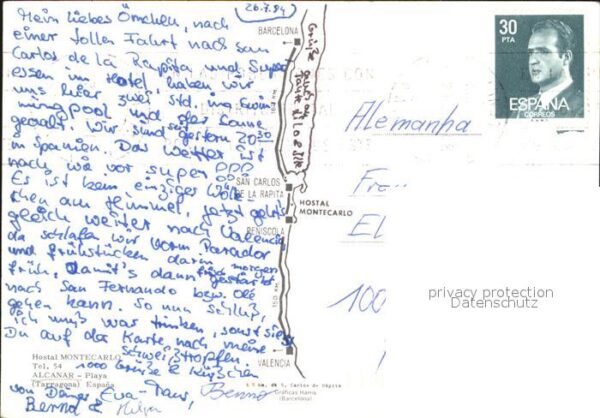 26.7.84
Mein liebes Ömchen, nach
einer tollen Fahrt nach San
Carlos de la Rapita und Super
essen im Hotel, haben wir
uns hier zwei Std. im Swim
mingpool und der Sonne
geaalt. Wir sind gestern 20.30
in Spanien. Das Wetter ist
nach wie vor super
Es ist kein einziger Wölk
chen am Himmel. Jetzt geht's
gleich weiter nach Valencia
da schlafen wir vorm Parador
und frühstücken darin morgen
früh, damit's dann gestärkt
nach San Fernando bzw. Olé
gehen kann. So nun Schluß,
ich muß was trinken, sonst siehst
Du auf der Karte noch meine
Schweißtropfen.
1000 Grüße & Küßchen
von Deiner Eva-
Bernd &
Benno
Grüße auch an
Tante
BARCELONA
SAN CARLOS
DE LA RAPITA
HOSTAL
MONTECARLO
PEÑISCOLA
150 KM
VALENCIA
Hostal MONTECARLO
Tel. 54
ALCANAR - Playa
(Tarragona) España
S. Carlos de Rápita
Gráficas Harris
(Barcelona)
30
PTA
ESPAÑA
CORREOS
Alemanha
El
100
privacy protection
Datenschutz